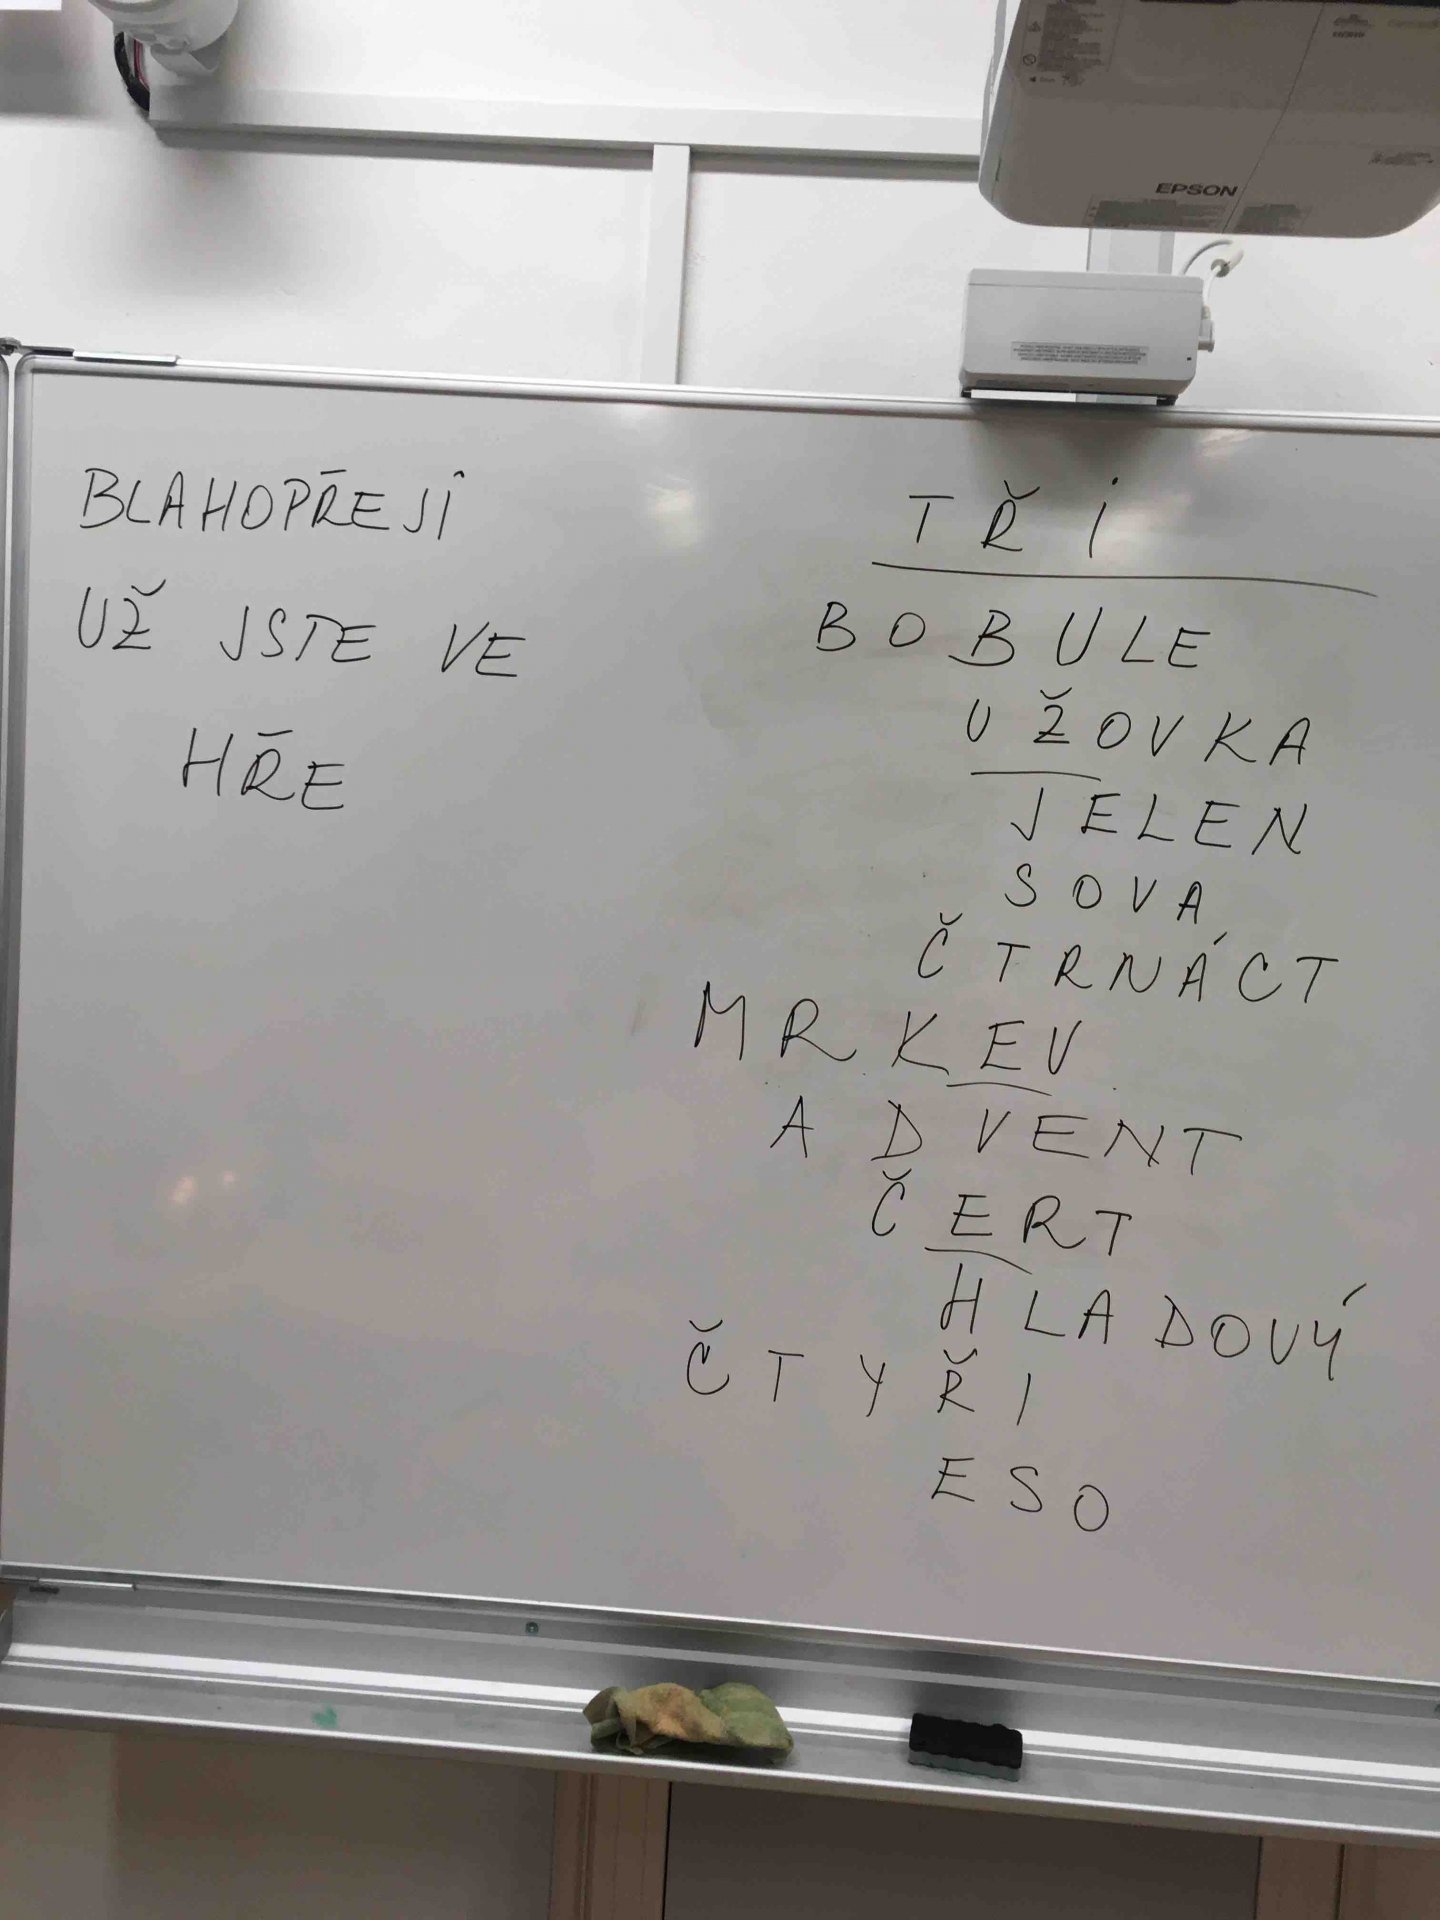 EPSON
BLAHOPŘEJI
UŽ JSTE VE
HŘE
TŘI
BOBULE
UŽOVKA
JELEN
SOVA
ČTRNÁCT
MRKEV
ADVENT
ČERT
HLADOVÝ
ČTYŘI
ESO